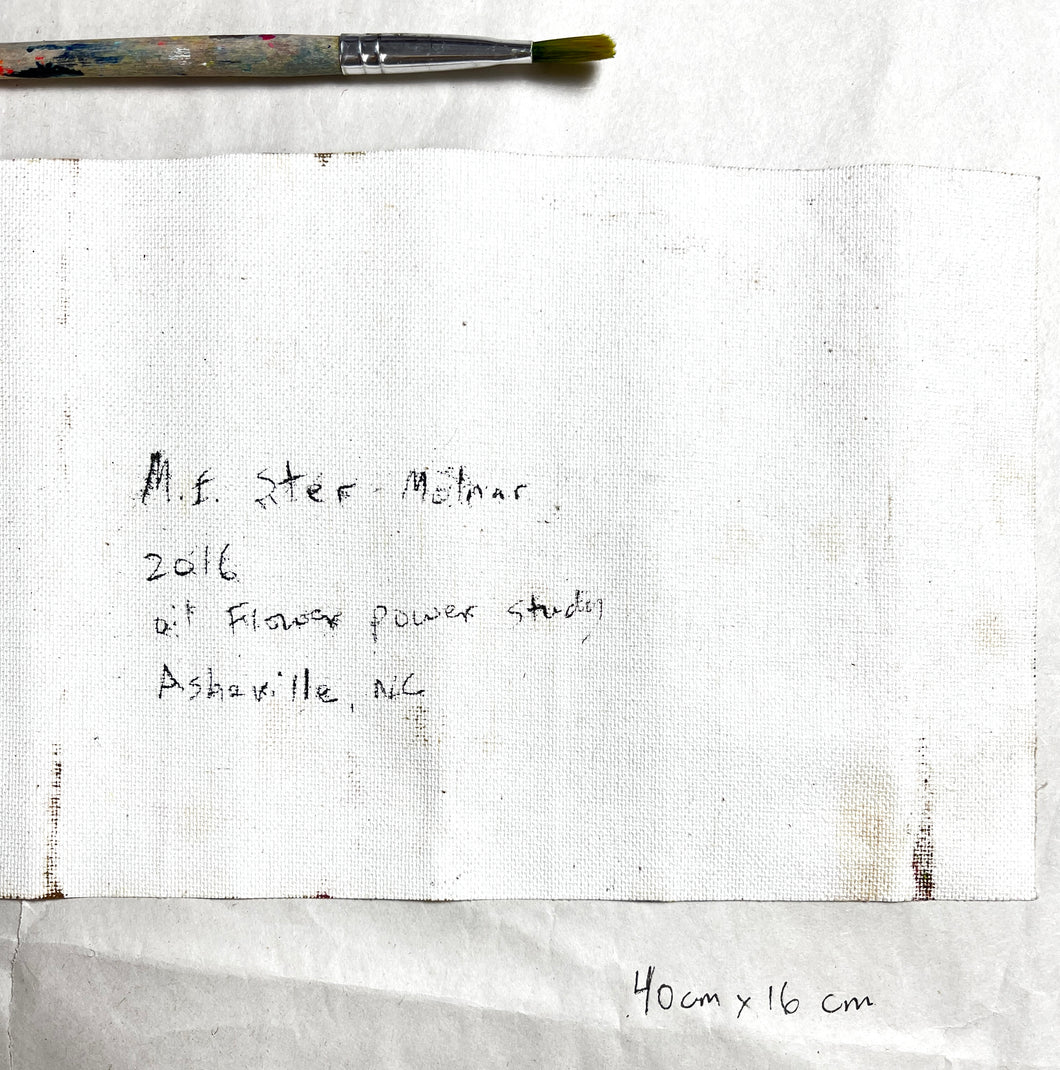 M.E. Ster-Molnar
2016
oil Flower power study
Asheville, NC
40cm x 16 cm